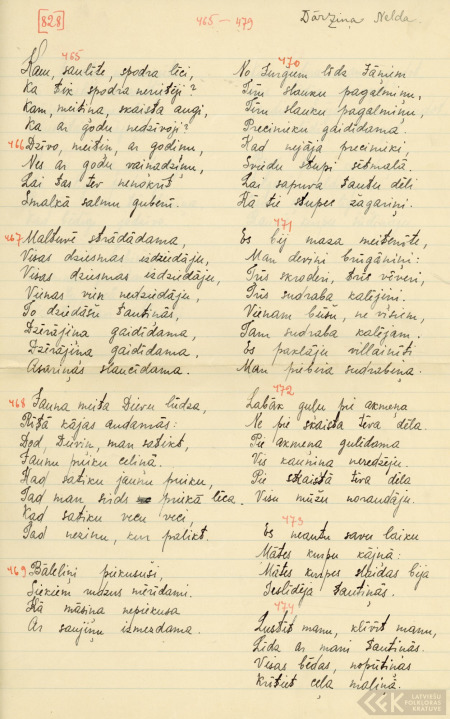 [828]
465 – 479
Dārziņa Nelda.
465
Kam, saulīte, spodra lēci,
Ka tik spodra neritēji?
Kam, meitiņa, skaista augi,
Ka ar godu nedzīvoji?
466 Dzīvo, meitiņ, ar godiņu,
Nes ar godu vainadziņu,
Lai tas tev nenokrīt
Smalkā salmu gubenī.
467 Maltuvē strādādama,
Visas dziesmas izdziedāju,
Visas dziesmas izdziedāju,
Vienas vien nedziedāju,
To dziedāšu tautiņās,
Dzērājiņa gaidīdama,
Dzērājiņa gaidīdama,
Asariņas slaucīdama.
468 Jauna meita Dievu lūdza,
Rītā kājas audamās:
Dod, Dieviņ, man satikt,
Jaunu puiku celiņā.
Kad satiku jaunu puiku,
Tad man sirds puikā lēca.
Kad satiku vecu veci,
Tad nezinu, kur palikt.
469 Bāleliņi piekusuši,
Siekiem naudu mērīdami.
Kā māsiņa nepiekusa
Ar saujiņu izmezdama.
470
No Jurģiem līdz Jāņiem
Tīru slauku pagalmiņu,
Tīru slauku pagalmiņu,
Precinieku gaidīdama.
Kad nejāja precinieki,
Sviedu stupi sētmalā.
Lai sapuva tautu dēli
Kā tie stupas žagariņi.
471
Es bij maza meitenīte,
Man deviņi brūgāniņi:
Trīs skroderi, trīs vēveri,
Trīs sudraba kalējiņi.
Vienam būšu, ne visiem,
Tam sudraba kalējam.
Es paklāju villainīti
Man piebira sudrabiņa.
472
Labāk guļu pie akmeņa
Ne pie skaista tēva dēla.
Pie akmeņa gulēdama
Vis kauniņa neredzēju.
Pie skaista tēva dēla
Visu mūžu noraudāju.
473
Es neautu savu laiku
Mātes kurpu kājiņā:
Mātes kurpes slaidas bija
Ieslīdēja tautiņās.
474
Lustes manu, klīrīt manu,
Līda ar mani tautiņās.
Visas bēdas, nopūtiņas
Kritiet ceļa maliņā.
LATVIEŠU
FOLKLORAS
KRĀTUVE